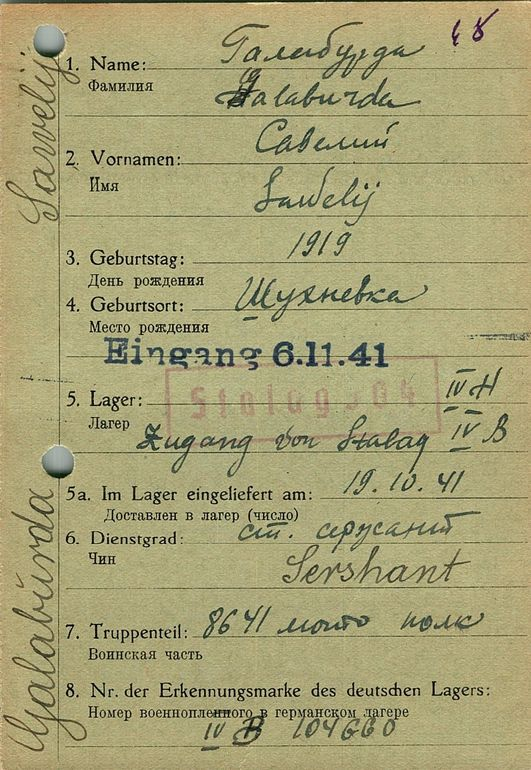 48
1. Name: Галабурда
Фамилия
Galaburda
Савелий
2. Vornamen:
Имя
Sawelij
1919
3. Geburtstag:
День рождения
4. Geburtsort: Шухневка
Место рождения
Eingang 6.11.41
Stalag 304
5. Lager: IV H
Лагер
Zugang von Stalag IV B
5a. Im Lager eingeliefert am: 19.10.41
Доставлен в лагер (число)
6. Dienstgrad: ст. сержант
Чин
Sershant
7. Truppenteil: 8641 мото полк
Воинская часть
8. Nr. der Erkennungsmarke des deutschen Lagers:
Номер военнопленного в германском лагере
IV B 104660
Galaburda Sawelij